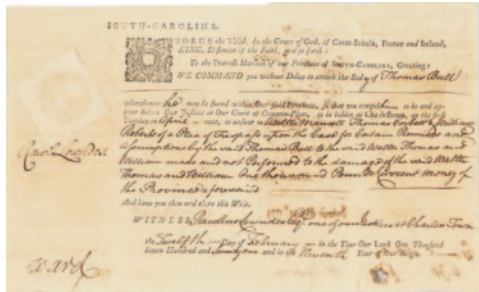 SOUTH-CAROLINA.
GEORGE the Third, by the Grace of God, of Great-Britain, France and Ireland,
KING, Defender of the Faith, and so forth:
To the Provost Marshal of our Province of SOUTH-CAROLINA, Greeting:
WE COMMAND you without Delay to attach the Body of Thomas Bull
wheresoever he may be found within Our said Province, so that you compel him to be and appear
before Our Justices at Our Court of Common Pleas, to be holden at Charlestown, on the first
Tuesday in April next, to answer to Mansell Thomas and William
Roberts of a Plea of Trespass upon the Case for Certain Promises and
Assumptions by the said Thomas Bull to the said Thomas and
William made and not Performed to the damage of the said
Thomas and William One thousand Pounds Current money of
the Province aforesaid
And have you then and there this Writ.
WITNESS, Rawlins Lowndes Esq. one of our Justices at Charles Town
the Twelfth Day of February in the Year Our Lord One Thousand
Seven Hundred and Seventy one and in the Eleventh Year of Our Reign.
Raw. Lowndes
Ward